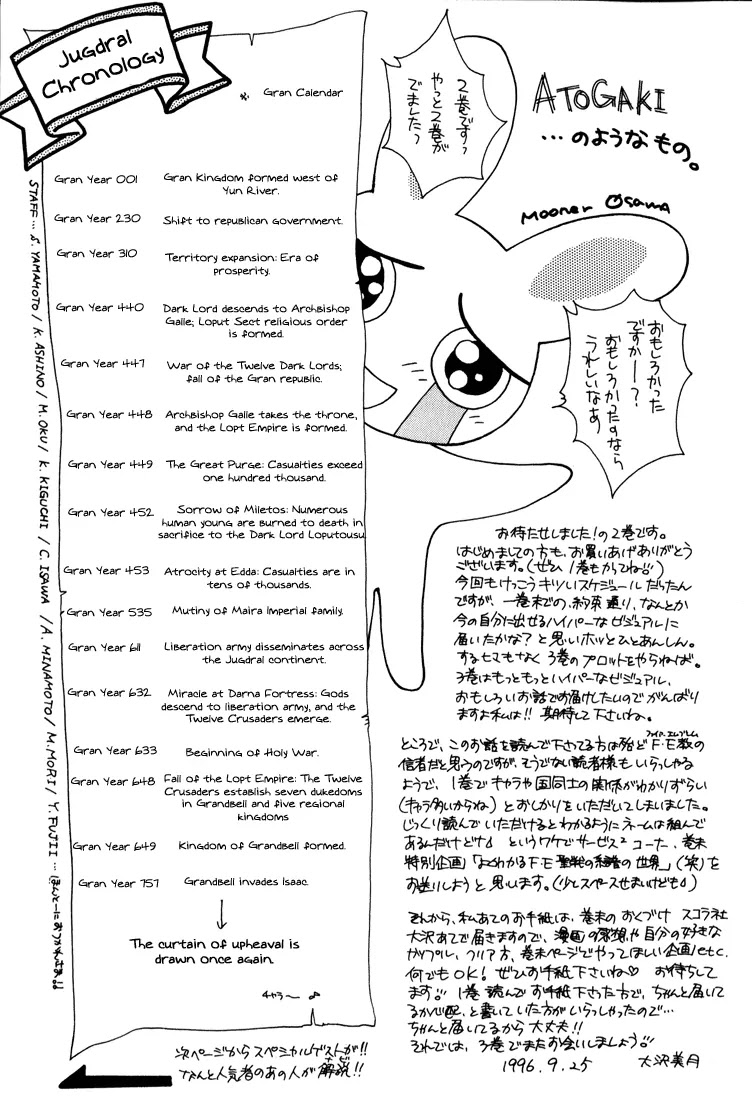 Jugdral
Chronology
Gran Calendar
Gran Year 001
Gran Kingdom formed west of
Yun River.
Gran Year 230
Shift to republican government.
Gran Year 310
Territory expansion: Era of
prosperity.
Gran Year 440
Dark Lord descends to Archbishop
Galle; Loput Sect religious order
is formed.
Gran Year 447
War of the Twelve Dark Lords;
fall of the Gran republic.
Gran Year 448
Archbishop Galle takes the throne,
and the Lopt Empire is formed.
Gran Year 449
The Great Purge: Casualties exceed
one hundred thousand.
Gran Year 452
Sorrow of Miletos: Numerous
human young are burned to death in
sacrifice to the Dark Lord Loputousu.
Gran Year 453
Atrocity at Edda: Casualties are in
tens of thousands.
Gran Year 535
Mutiny of Maira Imperial family.
Gran Year 611
Liberation army disseminates across
the Jugdral continent.
Gran Year 632
Miracle at Darna Fortress: Gods
descend to liberation army, and the
Twelve Crusaders emerge.
Gran Year 633
Beginning of Holy War.
Gran Year 648
Fall of the Lopt Empire: The Twelve
Crusaders establish seven dukedoms
in Grandbell and five regional
kingdoms
Gran Year 649
Kingdom of Grandbell formed.
Gran Year 757
Grandbell invades Isaac.
The curtain of upheaval is
drawn once again.
STAFF… S. YAMAMOTO / K. ASHINO / M. OKU / K. KIGUCHI / C. ISAWA / A. MINAMOTO / M. MORI / Y. FUJII …ほんとーにおつかれさま!!
次ページからスペシャルゲストが!!
なんと人気者のあの人が解説!!
ATOGAKI
…のようなもの。
Mooner Osawa
2巻です〜
やっと2巻が
でました〜
おもしろかった
ですかー?
おもしろかったのなら
うれしいなあ
お待たせしました!の2巻です。
はじめましての方も、お買いあげありがとう
ございます。(ぜひ1巻もみてね)
今回もけっこうキツいスケジュールだったん
ですが、一巻末での、約束通り、なんとか
今の自分に出せるハイパーなビジュアルに
届いたかな?と思いホッとひとあんしん。
するヒマもなく3巻のプロットをやらねば。
3巻はもっともっとハイパーなビジュアル、
おもしろいお話でお届けしたいのでがんばり
ますよ私は!!期待して下さいね。
ところで、このお話を読んで下さってる方は殆どF・E教の
ファイアーエムブレム
信者だと思うのですが、そうでない読者様もいらっしゃる
ようで、1巻でキャラや国同士の関係がわかりずらい
(キャラ多いからね)とおしかりをいただいてしまいました。
じっくり読んでいただけるとわかるようにネームは組んで
あるんだけどナ というワケでサービス2コーナー、巻末
特別企画「よくわかるF・E 聖戦の系譜の世界」(笑)を
お送りしようと思います。(少しスペースせまいけども)
それから、私あてのお手紙は、巻末のおくづけ スコラ社
大沢あてで届きますので、漫画の感想や自分の好きな
カップル、クリア方、巻末ページでやってほしい企画etc.
何でもOK!ぜひお手紙下さいね♡ お待ちして
ます 1巻読んでお手紙下さった方で、ちゃんと届いて
るか心配、と書いていた方がいらっしゃったので…
ちゃんと届いてるから大丈夫!!
それでは、3巻でまたお会いしましょう
1996.9.25 大沢美月